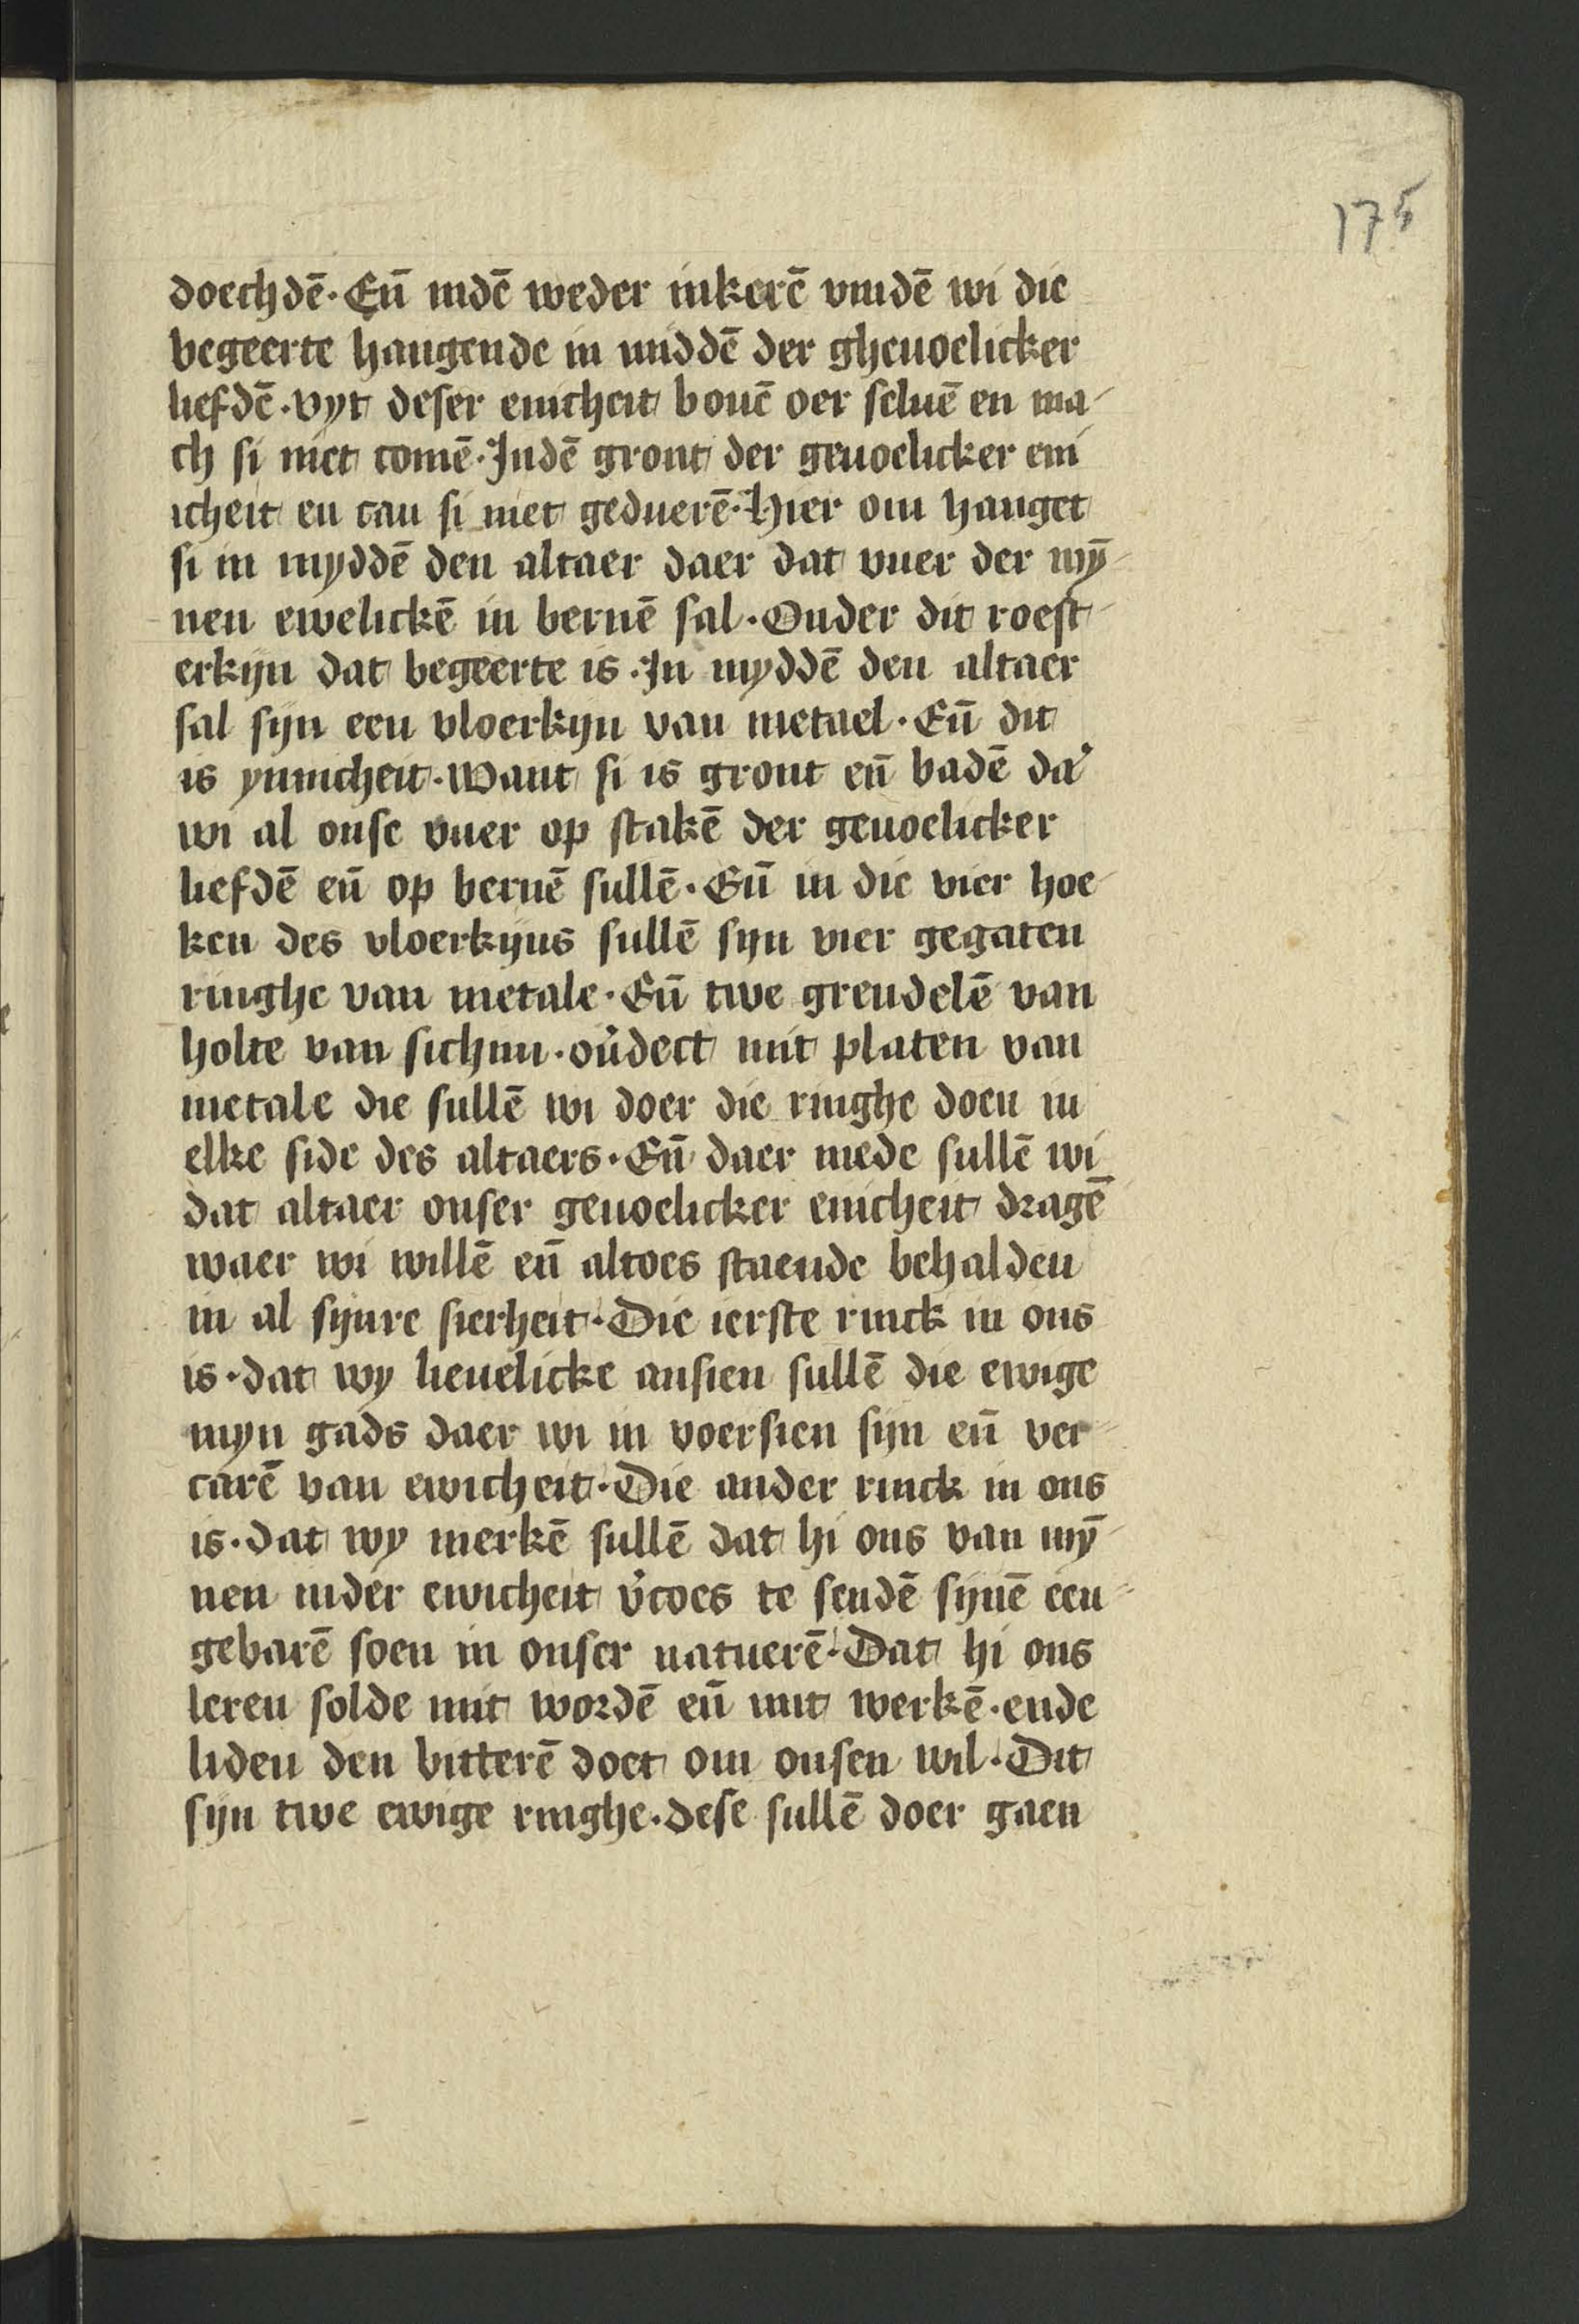 175
doechdē · En̄ indē weder inkerē vindē wi die
begeerte hangende in middē der gheuoelicker
liefdē · vyt deser enicheit bouē oer seluē en ma-
ch si niet comē · Indē gront der geuoelicker eni
icheit en can si niet geduerē · Hier om hanget
si in myddē den altaer daer dat vuer der mȳ-
nen ewelickē in bernē sal · Onder dit roest-
erkijn dat begeerte is · In myddē den altaer
sal sijn een vloerkijn van metael · En̄ dit
is ynnicheit · Want si is gront en̄ badē da᾿
wi al onse vuer op stakē der geuoelicker
liefdē en̄ op bernē sullē · En̄ in die vier hoe-
ken des vloerkijns sullē sijn vier gegaten
ringhe van metale · En̄ twe grendelē van
holte van sichim · ou᾿dect mit platen van
metale die sullē wi doer die ringhe doen in
elke side des altaers · En̄ daer mede sullē wi
dat altaer onser geuoelicker enicheit dragē
waer wi willē en̄ altoes staende behalden
in al sijnre sierheit · Die ierste rinck in ons
is · dat wy lieuelicke ansien sullē die ewige
myn gads daer wi in voersien sijn en̄ ver-
carē van ewicheit · Die ander rinck in ons
is · dat wy merkē sullē dat hi ons van mȳ-
nen inder ewicheit v᾿coes te sendē sijnē een-
gebarē soen in onser natuerē · Dat hi ons
leren solde mit wordē en̄ mit werkē · ende
liden den bitterē doet om onsen wil · Dit
sijn twe ewige ringhe · dese sullē doer gaen